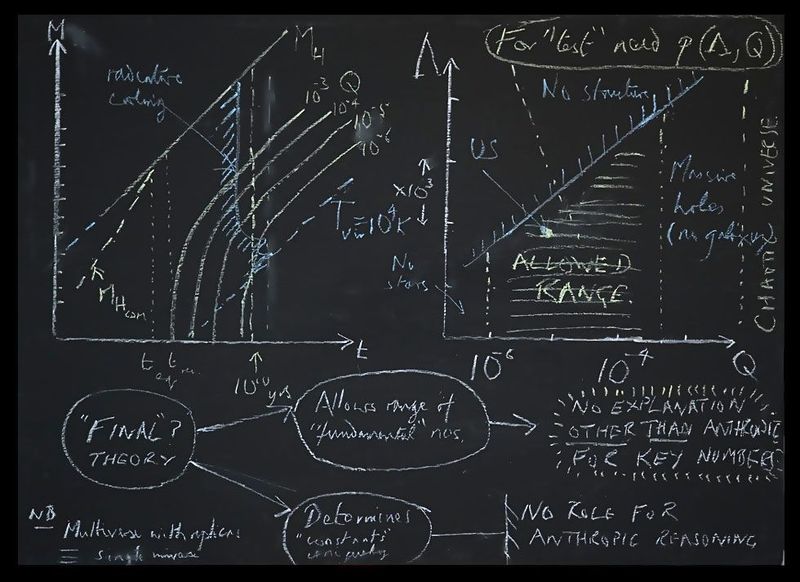 M
M_H
radiative
cooling
Q
10^-3
10^-4
10^-5
10^-6
T_vir = 10^4 K
M_H com
t_eq
t_rec
10^10 yrs
t
For "test" need p(Λ, Q)
Λ
No structure
US
×10^3
No
stars
ALLOWED
RANGE
Massive
holes
(no galaxies)
CHAOTIC UNIVERSE
10^-6
10^-4
Q
"FINAL"?
THEORY
Allows range of
"fundamental" nos.
NO EXPLANATION
OTHER THAN ANTHROPIC
FOR KEY NUMBERS
Determines
"constants"
uniquely
NO ROLE FOR
ANTHROPIC REASONING
NB
Multiverse with replicas
≡ single universe